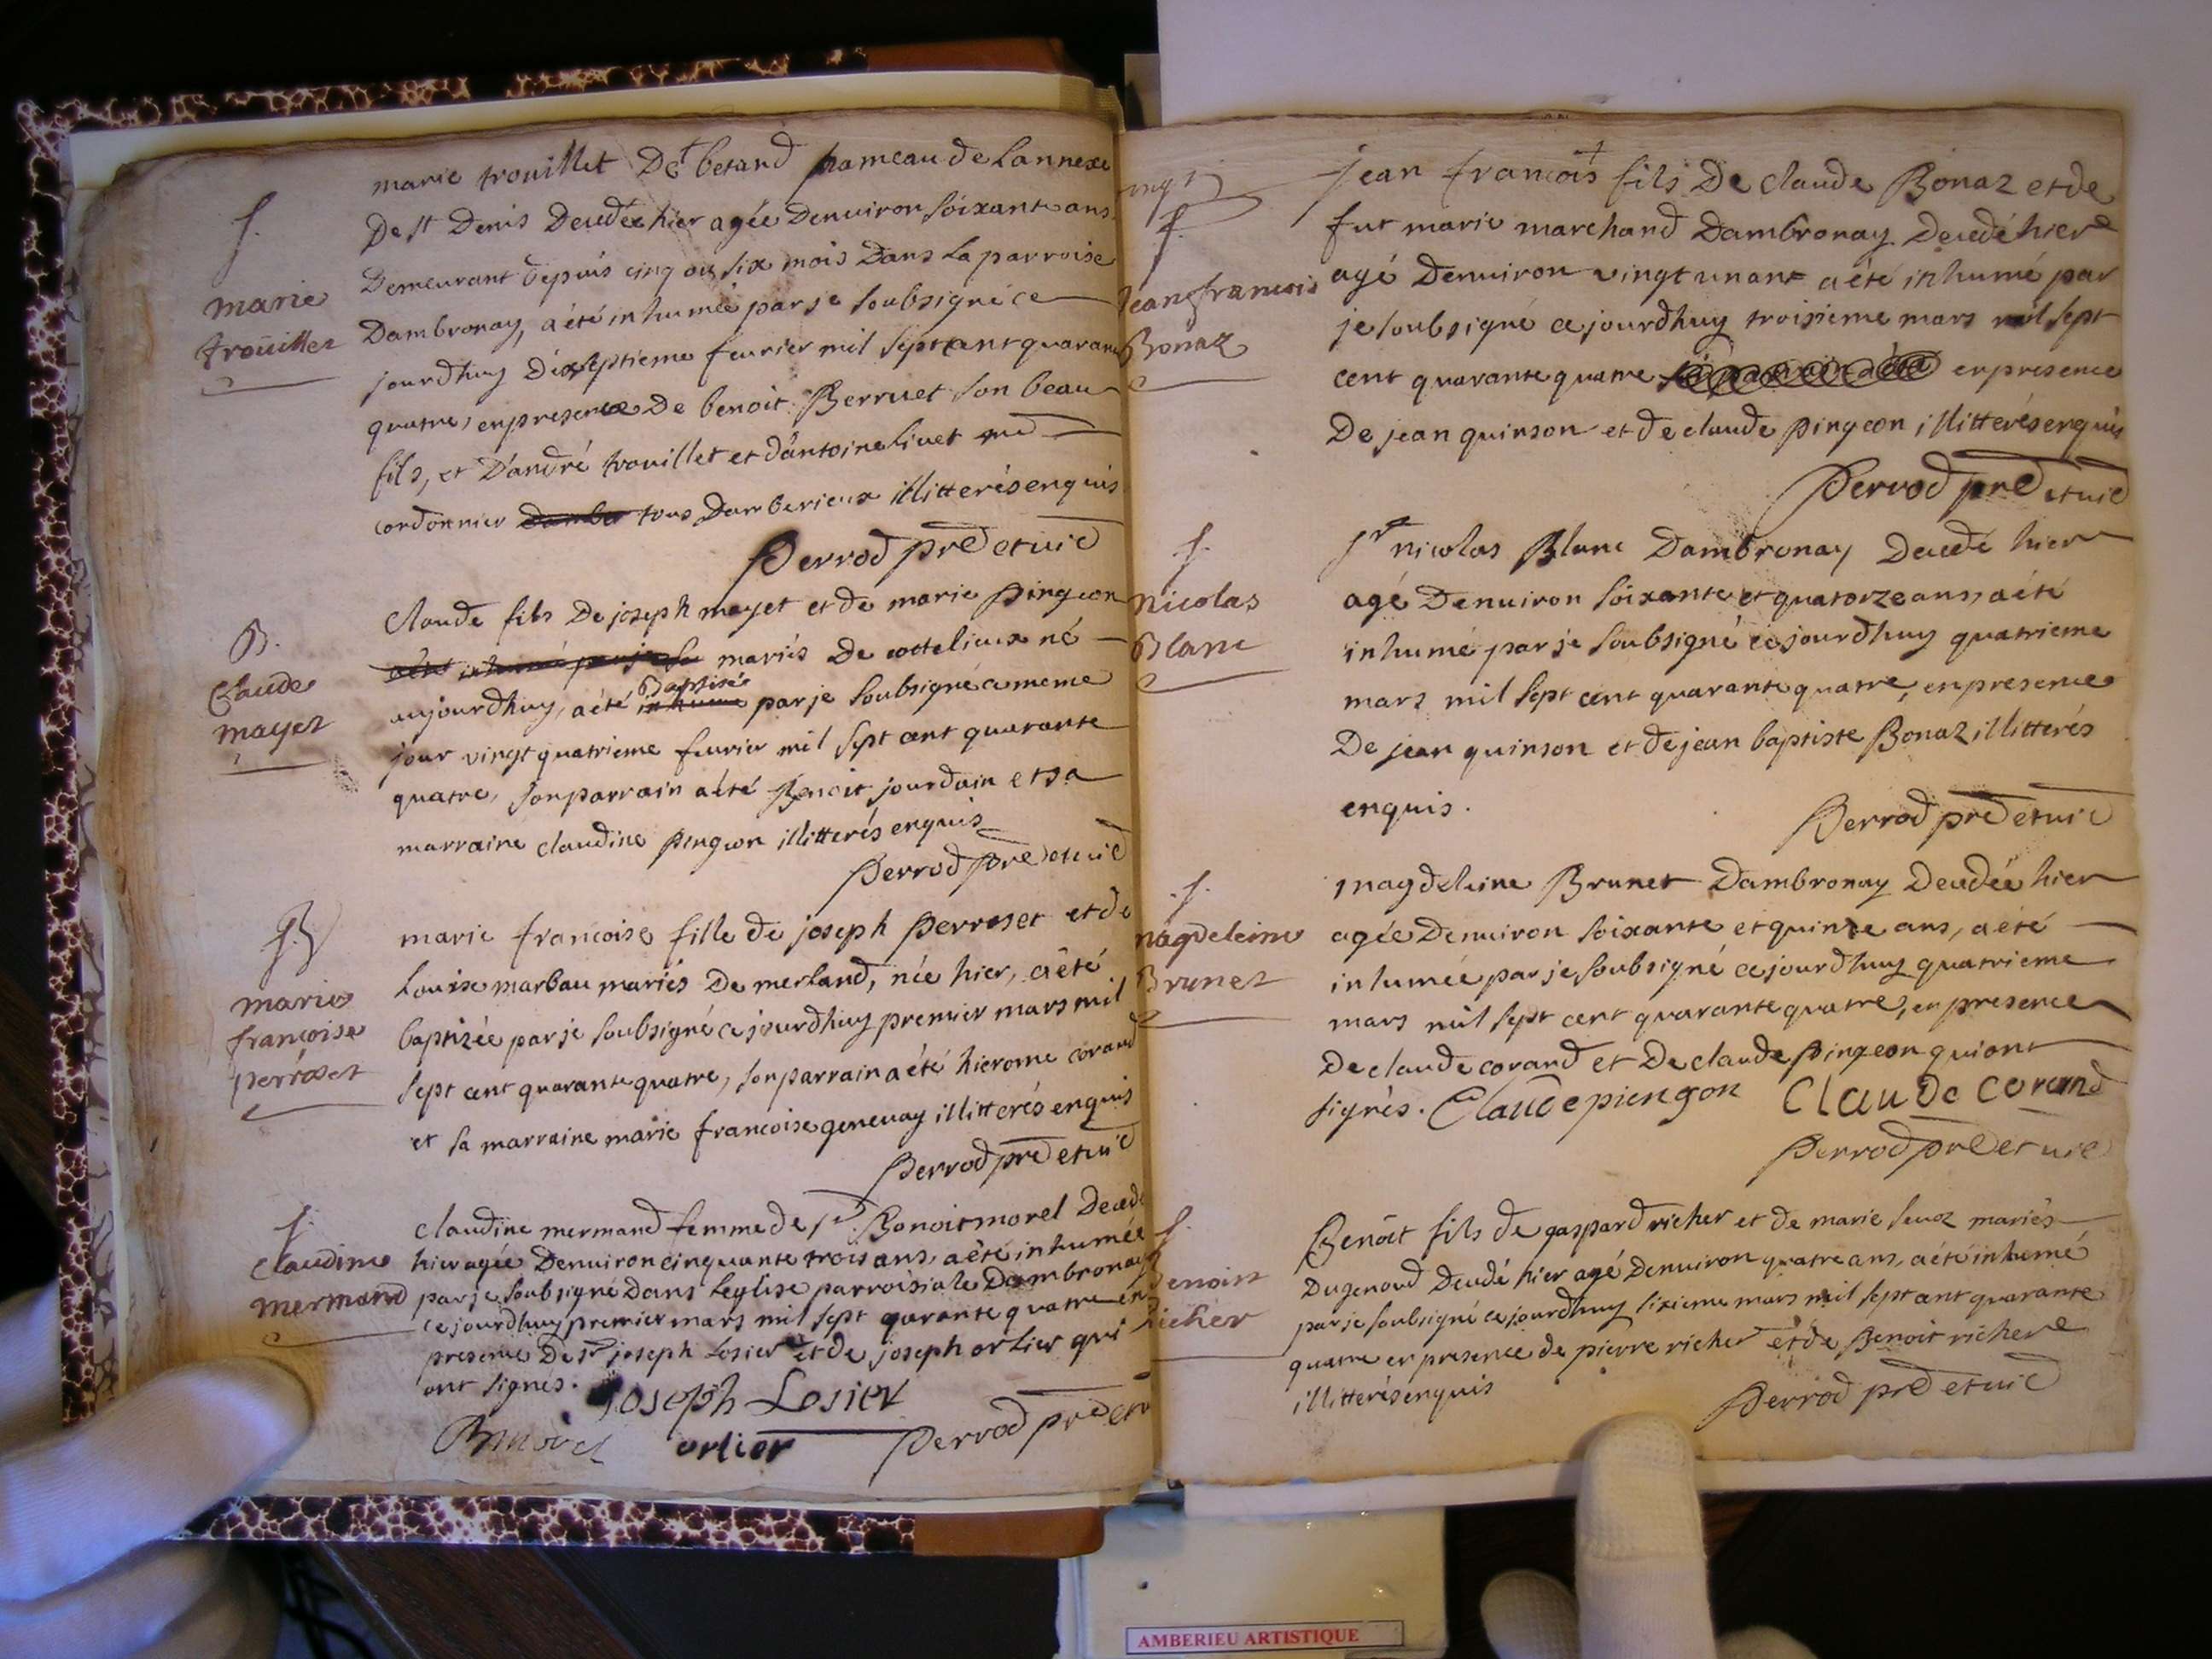 marie trouillet De betand hameau de Lannexe
De st Denis Decedée hier agée Denuiron soixante ans
Demeurant depuis cinq ou six mois Dans la parroise
Dambronay, a été inhumée par je soubsigné ce
jourdhuy dixseptieme feurier mil sept cent quarante
quatre, en presence De benoit Berruet son beau
fils, et D'andré trouillet et d'antoine liuet
cordonnier tous Damberieux illitterés enquis
Perrod pre et uic
s.
marie
trouillet
Claude fils De joseph mayet et de marie pingeon
a été inhumé par je so mariés De cottelieux né
aujourdhuy, a été inhumé baptisé par je soubsigné ce meme
jour vingt quatrieme feurier mil sept cent quarante
quatre, son parrain a été Benoit jourdain et sa
marraine claudine pingeon illitterés enquis
Perrod pre et uic
B.
Claude
mayet
marie francoise fille de joseph perroset et de
Louise marbau mariés De merland, née hier, a été
baptizée par je soubsigné ce jourdhuy premier mars mil
sept cent quarante quatre, son parrain a été hierome corand
et sa marraine marie francoise geneuay illitterés enquis
Perrod pre et uic
marie
françoise
perroset
claudine mermand femme de sr. Benoit morel Decedé
hier agée Denuiron cinquante trois ans, a été inhumée
par je soubsigné Dans l'eglise parroissiale Dambronay
ce jourdhuy premier mars mil sept quarante quatre en
presence De sr joseph Losier et de joseph orlier qui
ont signés. Joseph Losier
Bmorel orlier Perrod pre et u
s.
Claudine
mermand
jean francois fils De claude Bonaz et de
fut marie marchand Dambronay Decedé hier
agé Denuiron vingt un ant a été inhumé par
je soubsigné ce jourdhuy troisieme mars mil sept
cent quarante quatre en presence
De jean quinson et de claude pingeon illitterés enquis
Perrod pre et uic
s.
Jean francois
Bonaz
sr nicolas Blanc Dambronay Decedé hier
agé Denuiron soixante et quatorze ans, a été
inhumé par je soubsigné ce jourdhuy quatrieme
mars mil sept cent quarante quatre, en presence
De jean quinson et de jean baptiste Bonaz illitterés
enquis.
Perrod pre et uic
s.
Nicolas
Blanc
magdeleine Brunet Dambronay Decedée hier
agée Denuiron soixante et quinze ans, a été
inhumée par je soubsigné ce jourdhuy quatrieme
mars mil sept cent quarante quatre, en presence
De claude corand et De claude pingeon qui ont
signés. Claude piengon Claude corand
Perrod pre et uic
s.
magdeleine
Brunet
Benoit fils de gaspard richer et de marie seuoz mariés
Dugenoud Decedé hier agé Denuiron quatre ans, a été inhumé
par je soubsigné ce jourdhuy sixieme mars mil sept cent quarante
quatre en presence de pierre richer et de Benoit richer
illitterés enquis
Perrod pre et uic
s.
Benoist
Richer
AMBERIEU ARTISTIQUE